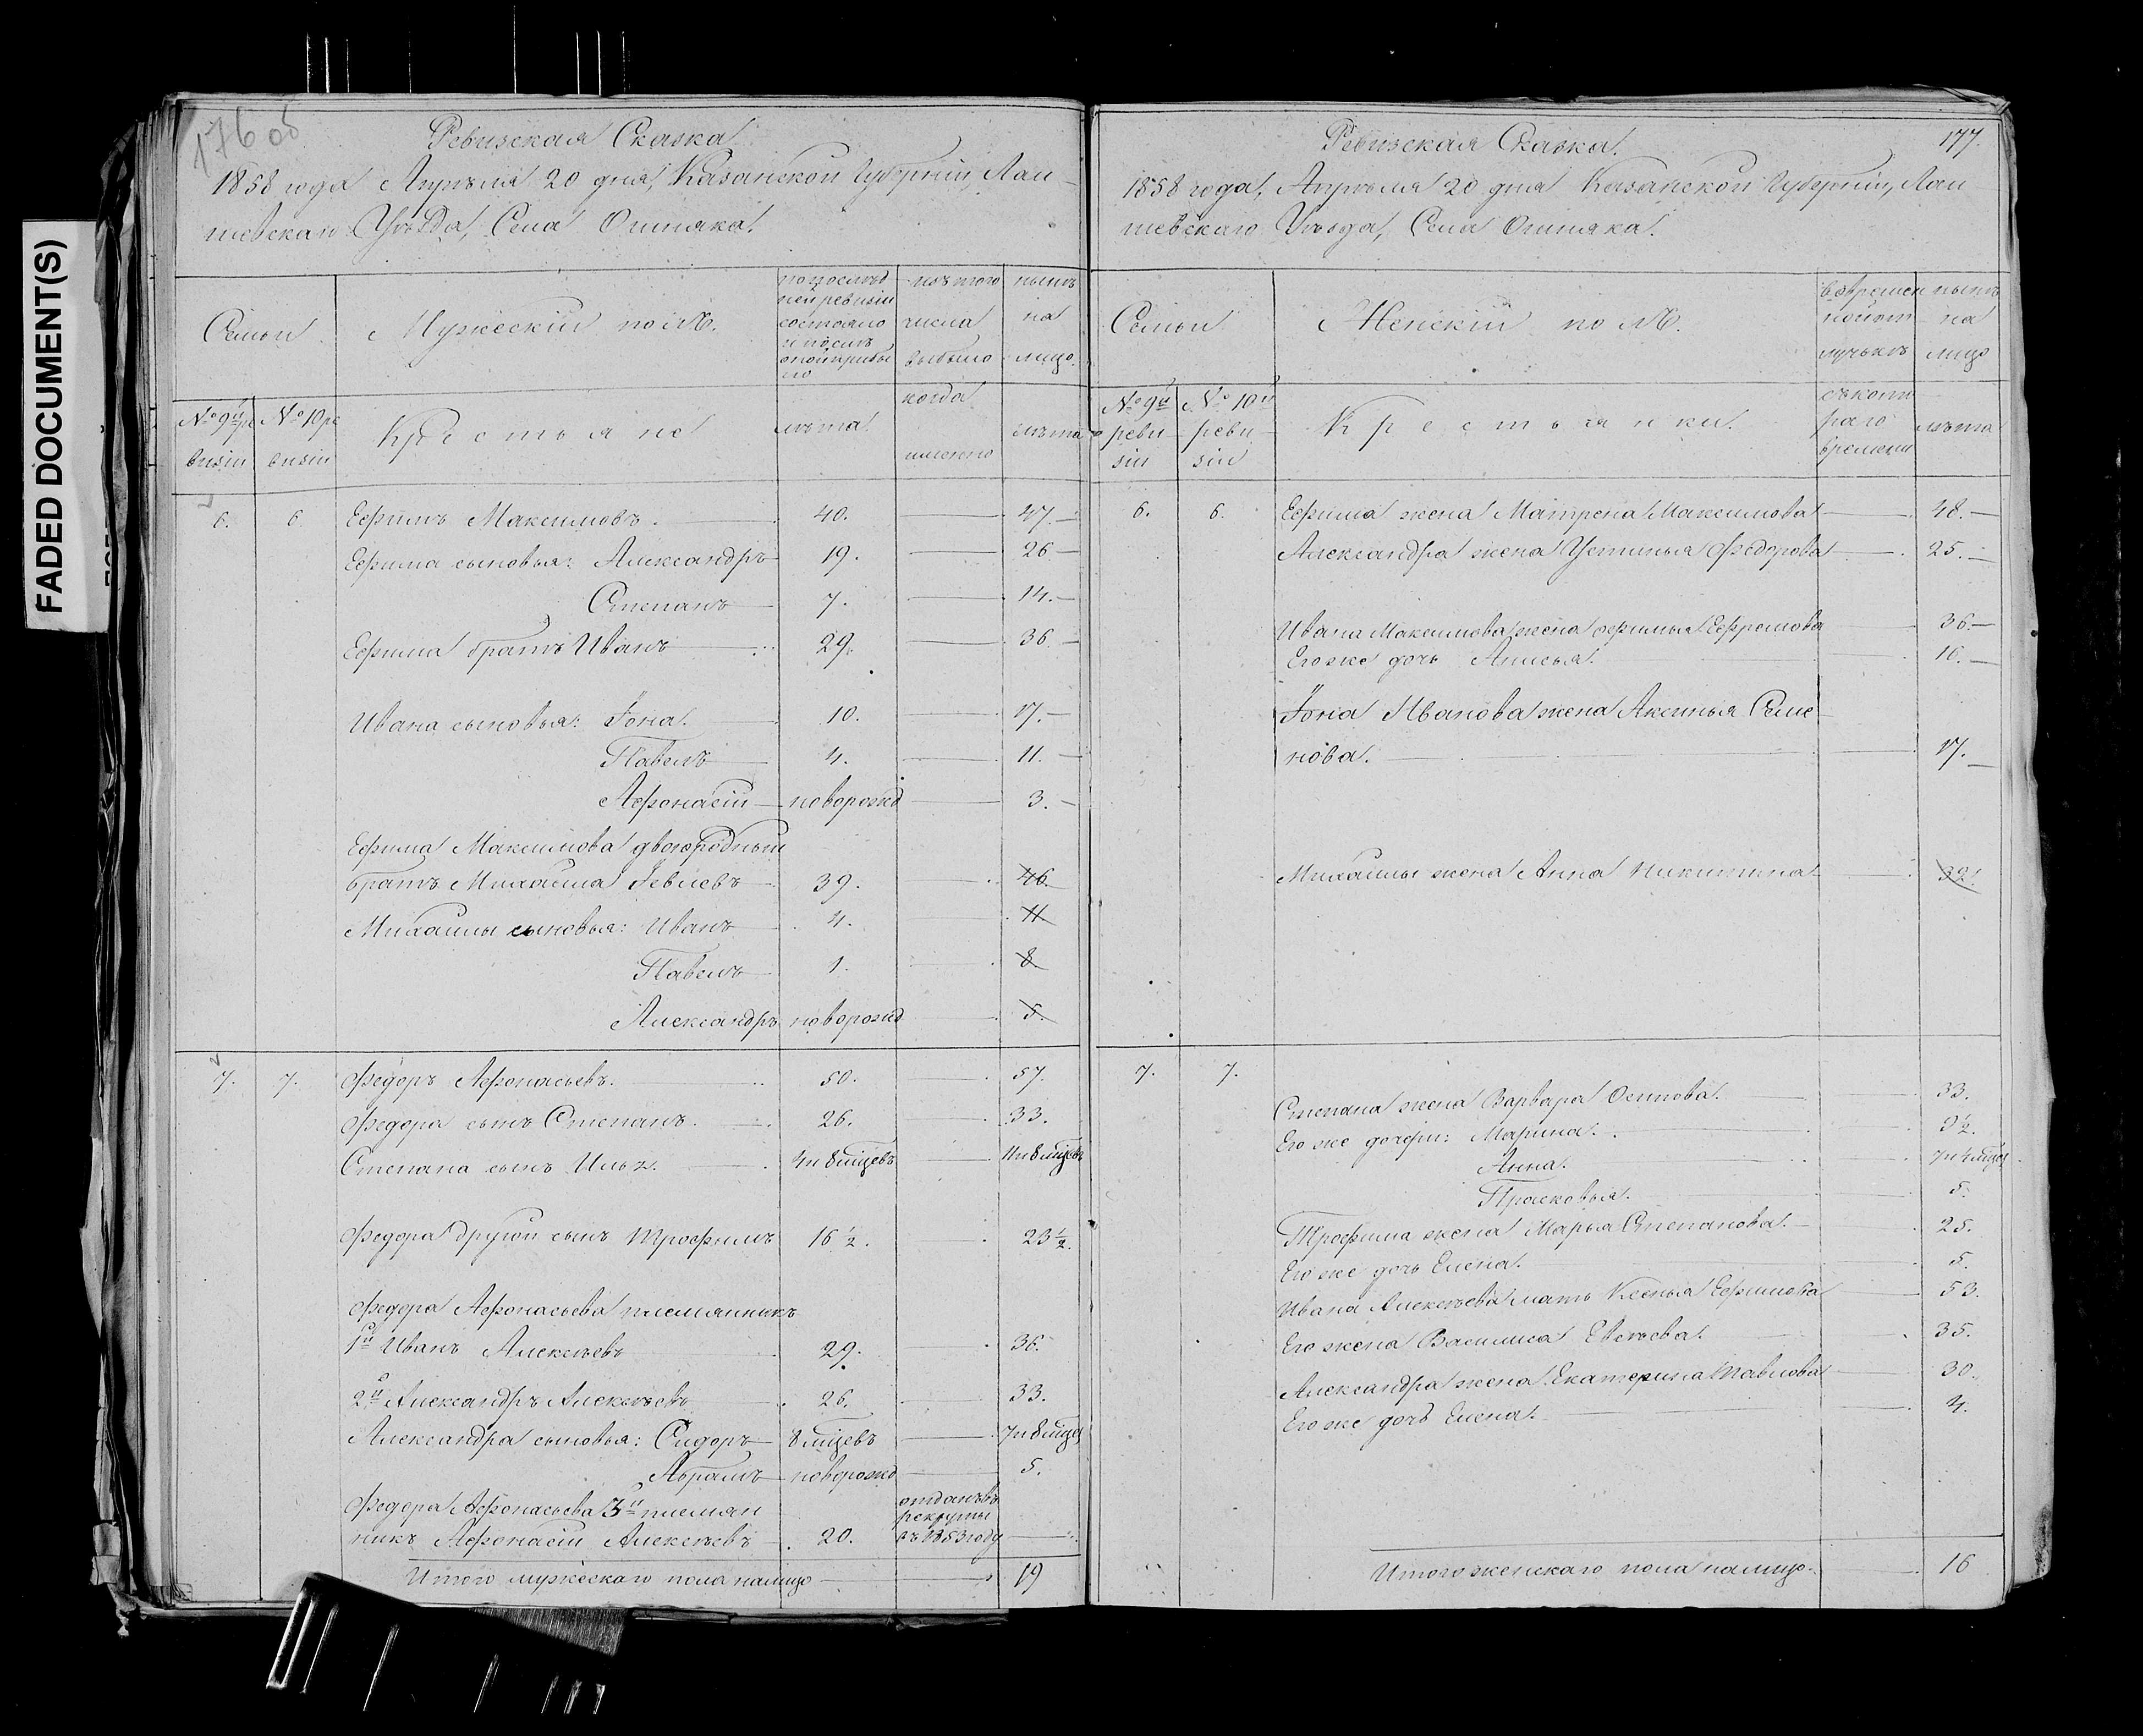 FADED DOCUMENT(S)
176 об
Ревизская Сказка
1858 года Апрѣля 20 дня, Казанской Губерніи, Лаи
шевскаго Уѣзда, Села Ошняка.
Семьи
Мужескій полъ.
по послѣд
ней ревизіи
состояло
и послѣ
оной прибы
ло
изъ того
числа
выбыло
нынѣ
на
лицо
№ 9й ре
визіи
№ 10 ре
визіи
Крестьяне
лѣта
когда
именно
лѣта
6. 6. Ефимъ Максимовъ. 40. 47.
Ефима сыновья: Александръ 19. 26
Степанъ 7. 14.
Ефима братъ Иванъ 29. 36
Ивана сыновья: Іона. 10. 17.
Павелъ 4. 11.
Афонасій новорожд 3.
Ефима Максимова двоюродный
братъ Михайла Іевлевъ 39. 46.
Михайлы сыновья: Иванъ 4. 11
Павелъ 1. 8.
Александръ новорожд 5.
7. 7. Федоръ Афонасьевъ. 50. 57.
Федора сынъ Степанъ. 26. 33.
Степана сынъ Илья. 4 и 8 мцевъ 11 и 8 мцевъ
Федора другой сынъ Трофимъ 16 1/2. 23 1/2.
Федора Афонасьева племянникъ
1й Иванъ Алексѣевъ 29. 36.
2й Александръ Алексѣевъ 26. 33.
Александра сыновья: Сидоръ 8 мцевъ 7 и 8 мцев
Абрамъ новорожд 5.
Федора Афонасьева 3й племян
никъ Афонасій Алексѣевъ 20. отданъ въ рекруты въ 1853 году
Итого мужескаго пола налицо 19
177.
Ревизская Сказка.
1858 года, Апрѣля 20 дня Казанской Губерніи, Лаи
шевскаго Уѣзда, Села Ошняка.
Семьи
Женскій полъ.
нынѣ
на
лицо
№ 9й
реви
зіи
№ 10й
реви
зіи
Крестьянки.
съ кото
раго
времени
лѣта
6. 6. Ефима жена Матрена Максимова 48.
Александра жена Устинья Федорова 25.
Ивана Максимова жена Офимья Ефремова 36.
Его же дочь Анисья. 10.
Іона Иванова жена Аксинья Семе
нова. 17.
Михайлы жена Анна Никитина 32.
7. 7.
Степана жена Варвара Осипова. 33.
Его же дочери: Марина. 9 1/2.
Анна. 7 и 4 мцев
Прасковья. 5.
Трофима жена Марья Степанова. 25.
Его же дочь Елена. 5.
Ивана Алексѣева мать Ксенья Ефимова 53.
Его жена Василиса Евсѣева. 35.
Александра жена Екатерина Павлова 30.
Его же дочь Елена. 4.
Итого женскаго пола налицо. 16